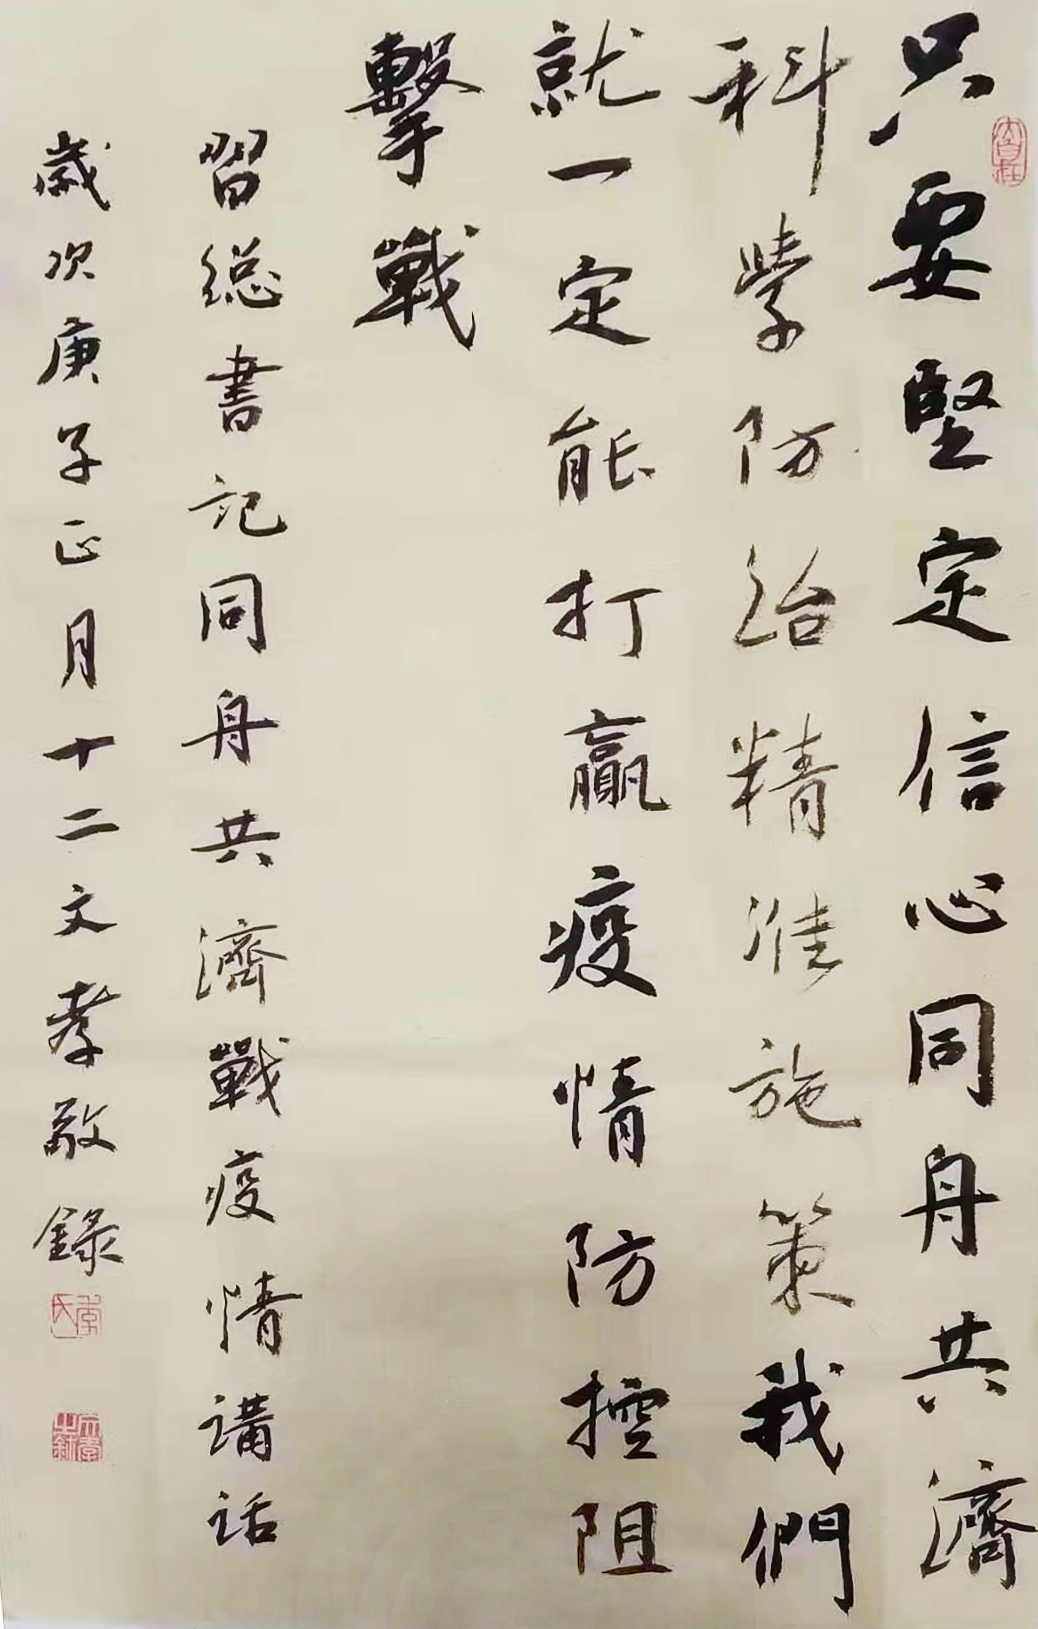 只要堅定信心同舟共濟
科學防治精准施策我們
就一定能打贏疫情防控阻
擊戰
習總書記同舟共濟戰疫情講話
歲次庚子正月十二文孝敬錄